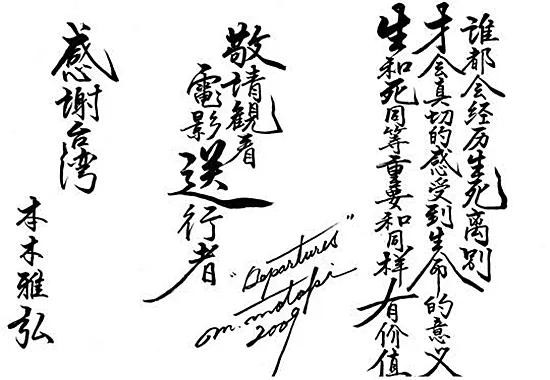 谁都会经历生死离别
才会真切的感受到生命的意义
生和死同等重要和同样有价值
敬請観看
電影
送行者
"Departures"
m. motoki
2009
感謝台湾
本木雅弘